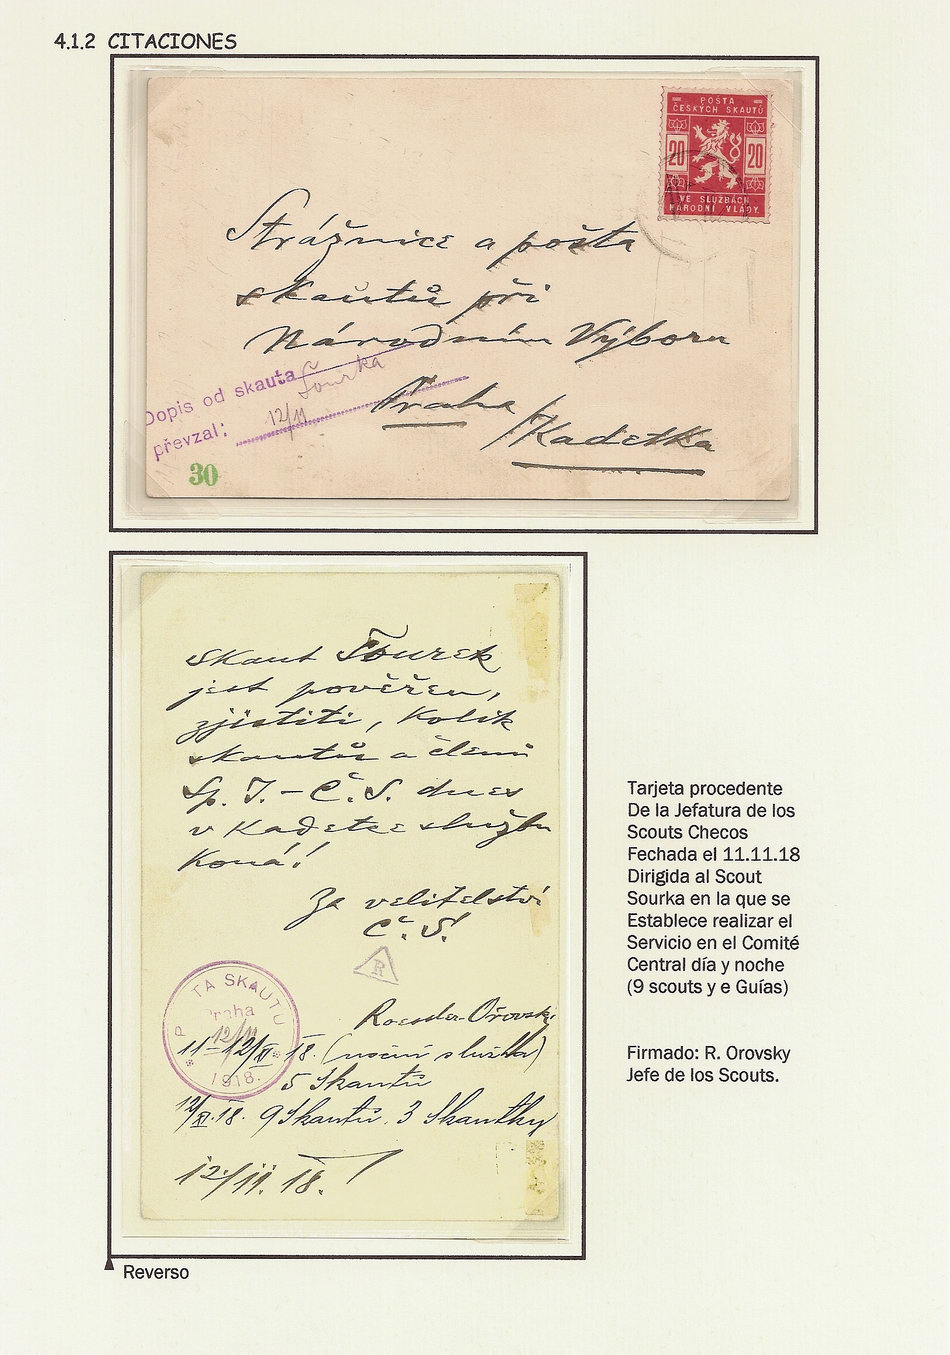 4.1.2 CITACIONES
POŠTA
ČESKÝCH SKAUTŮ
20 20
VE SLUŽBÁCH
NÁRODNÍ VLÁDY.
Strážnice a pošta
skautů při
Národním Výboru
Praha /
/Kadetka
Dopis od skauta Šourka
převzal: 12/11
30
Skaut Šourek
jest pověřen,
zjistiti, kolik
skautů a členů
Sp. J. – Č. S. dnes
v Kadetce službu
koná!
Za velitelství
Č. S.!
R
Roessler-Ořovský
P TA SKAUTŮ
Praha
12/11
* 1918. *
11–12/XI 18. (noční služba)
5 Skautů
12/XI.18. 9 Skautů. 3 Skautky
12/11. 18.
Tarjeta procedente
De la Jefatura de los
Scouts Checos
Fechada el 11.11.18
Dirigida al Scout
Sourka en la que se
Establece realizar el
Servicio en el Comité
Central día y noche
(9 scouts y e Guías)
Firmado: R. Orovsky
Jefe de los Scouts.
Reverso